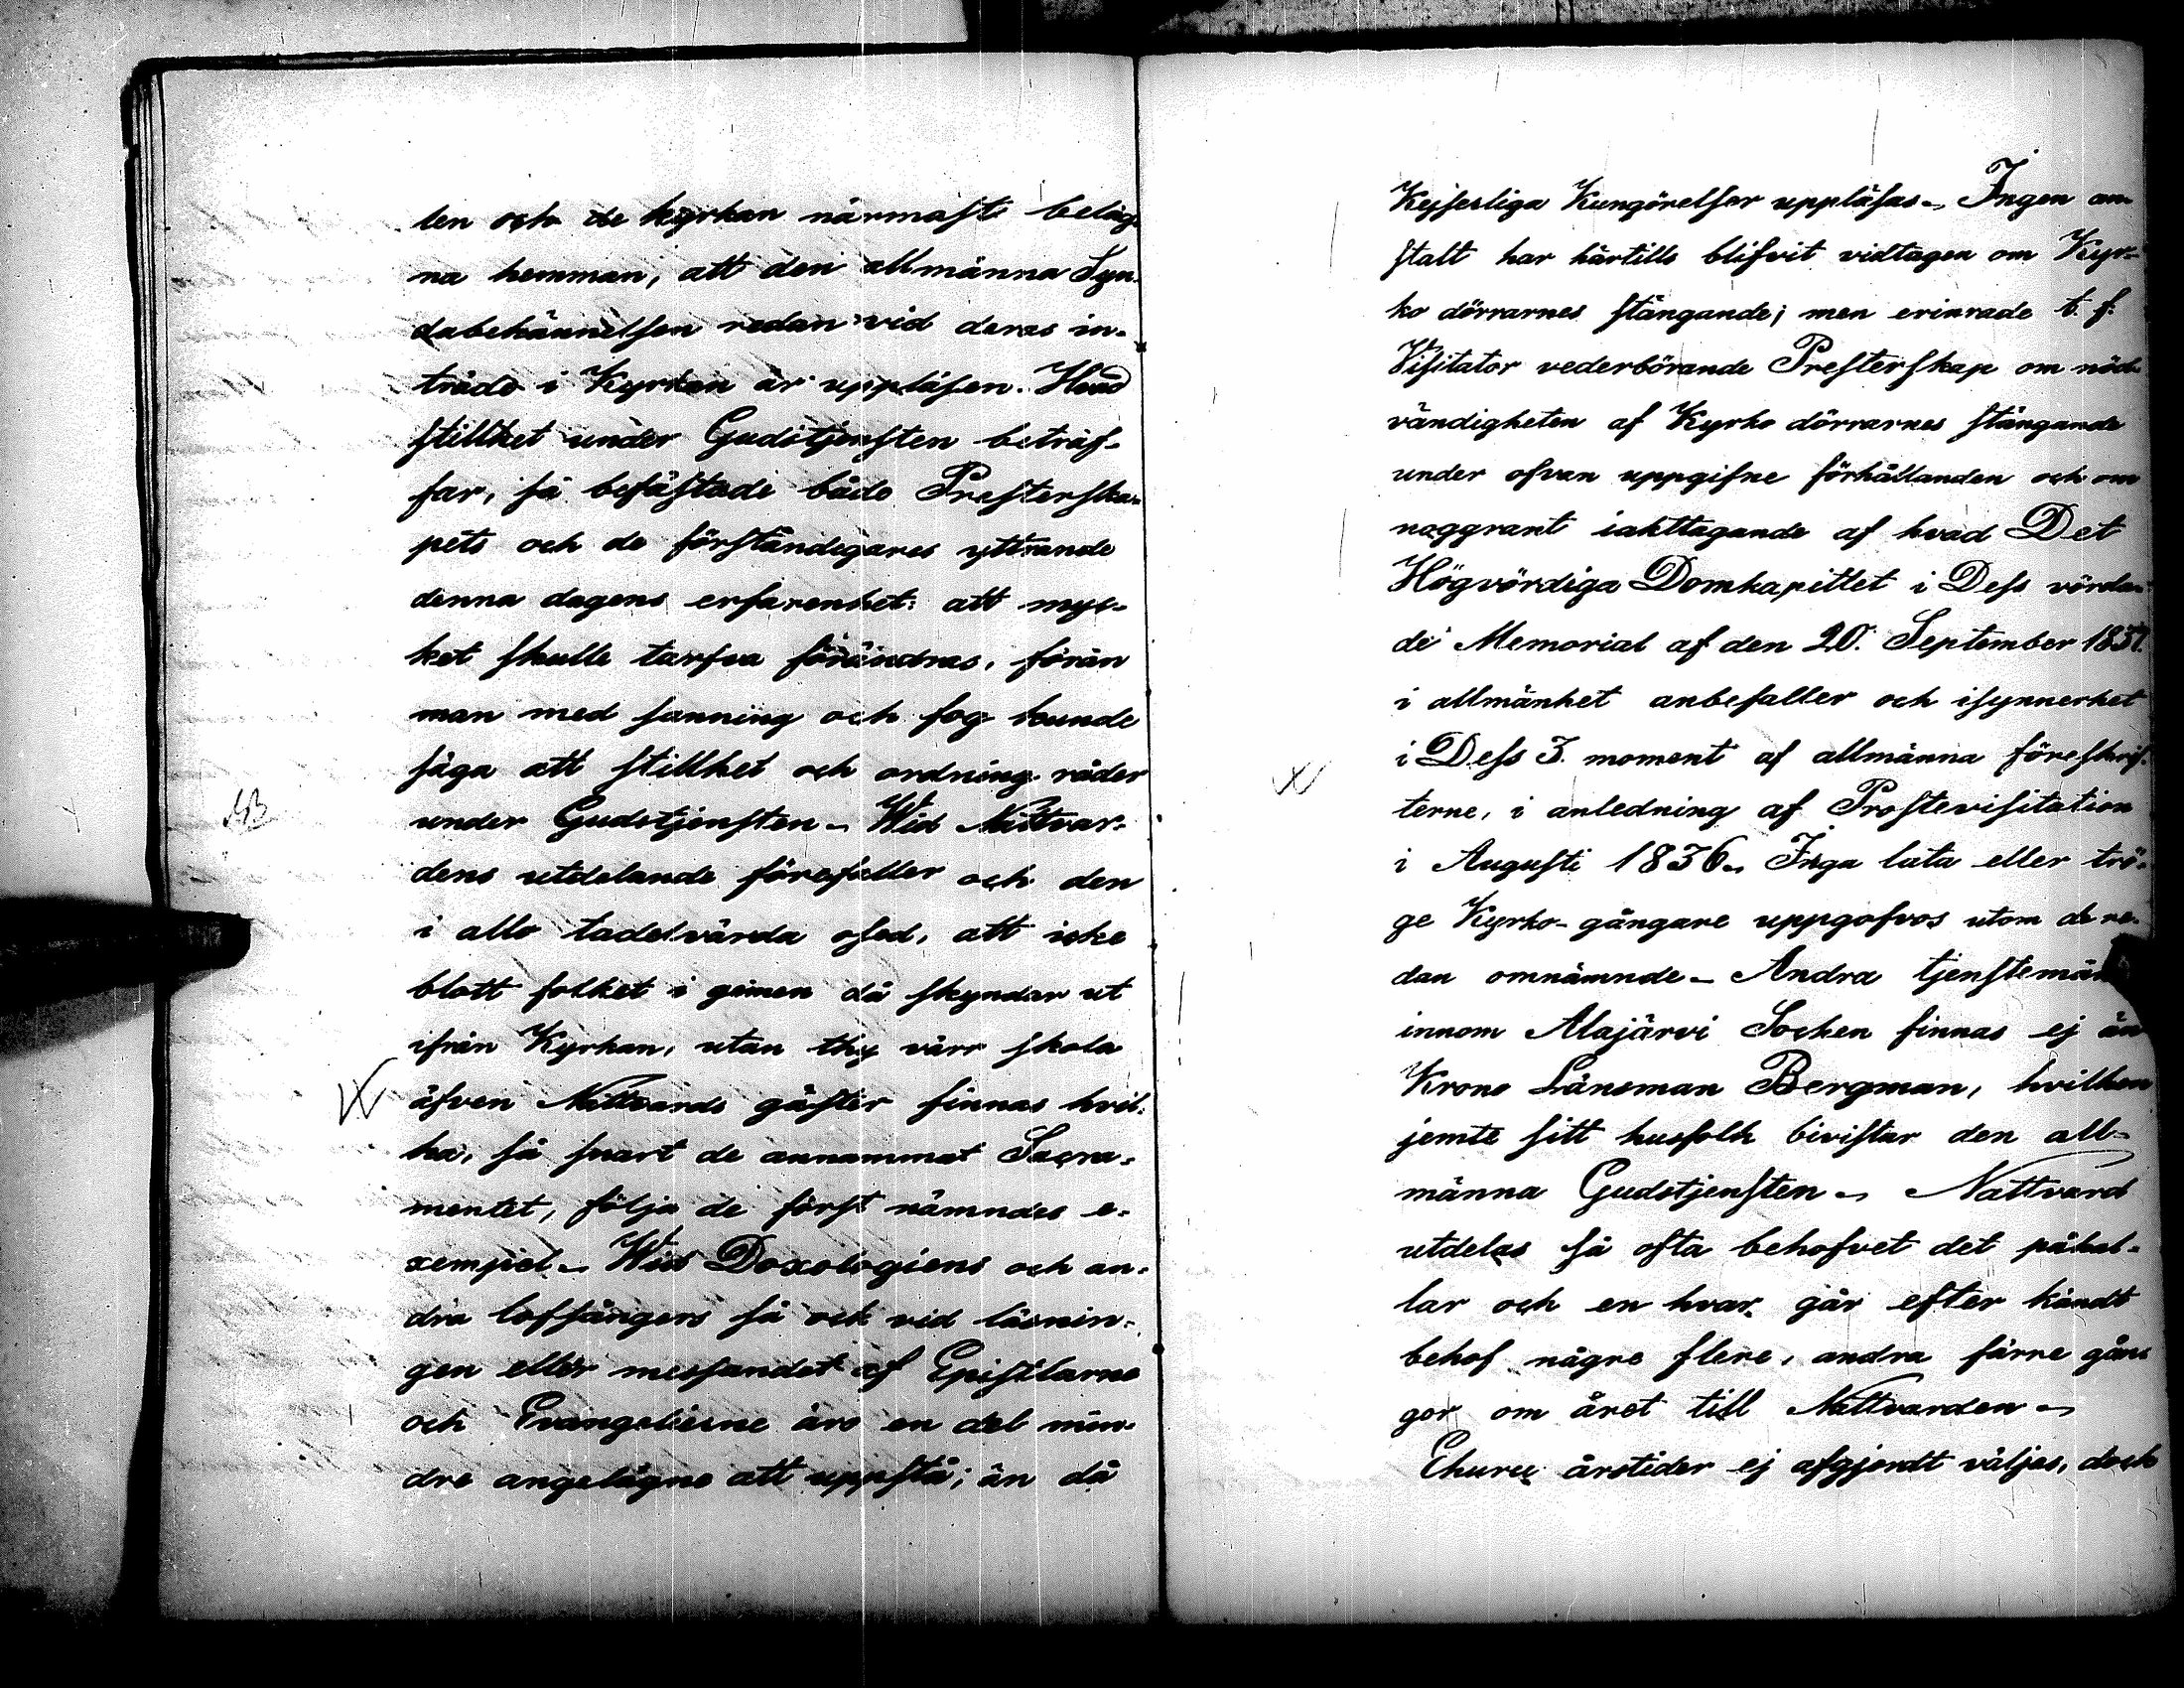 len och de kyrkan närmaste beläg-
na hemman, att den allmänna Syn-
dabekännelsen redan vid deras in-
träde i Kyrkan är uppläsen. Hvad
stillhet under Gudstjensten beträf-
far, så befästade både Presterska-
pets och de förståndegares yttrande
denna dagens erfarenhet: att myc-
ket skulle tarfva förändras, förän
man med sanning och fog kunde
säga att stillhet och ordning råder
under Gudstjensten - Wid Nattvar-
dens utdelande förefaller och den
i allo tadelvärda osed, att icke
blott folket i gemen då skyndar ut
ifrån Kyrkan, utan thy värr skola
äfven Nattvards gäster finnas hvil-
ka, så snart de annammat Sacra-
mentet, följa de först nämndes e-
xempel - Wid Doxologiens och an-
dra lofsångers så ock vid läsnin-
gen eller messandet af Epistlarne
och Evangelierne äro en del min-
dre angelägne att uppstå; än då
Kejserliga Kungörelser uppläsas - Ingen an-
stalt har härtills blifvit vidtagen om Kyr-
ko dörrarnes stängande; men erinrade t. f.
Visitator vederbörande Presterskap om nöd-
vändigheten af Kyrko dörrarnes stängande
under ofvan uppgifne förhållanden och om
noggrant iakttagande af hvad Det
Högvördiga Domkapitlet i Dess vördan-
de Memorial af den 20. September 1837.
i allmänhet anbefaller och isynnerhet
i Dess 3. moment af allmänna föreskrif-
terne, i anledning af Prostevisitation
i Augusti 1836 - Inga lata eller trö-
ge Kyrko-gångare uppgofvos utom de re-
dan omnämnde - Andra tjenstemän
innom Alajärvi Socken finnas ej än
Krono Länsman Bergman, hvilken
jemte sitt husfolk bivistar den all-
männa Gudstjensten - Nattvard
utdelas så ofta behofvet det påkal-
lar och en hvar går efter kändt
behof någre flere, andra färre gån-
gor om året till Nattvarden -
Ehuru årstider ej afgjordt väljas, dock